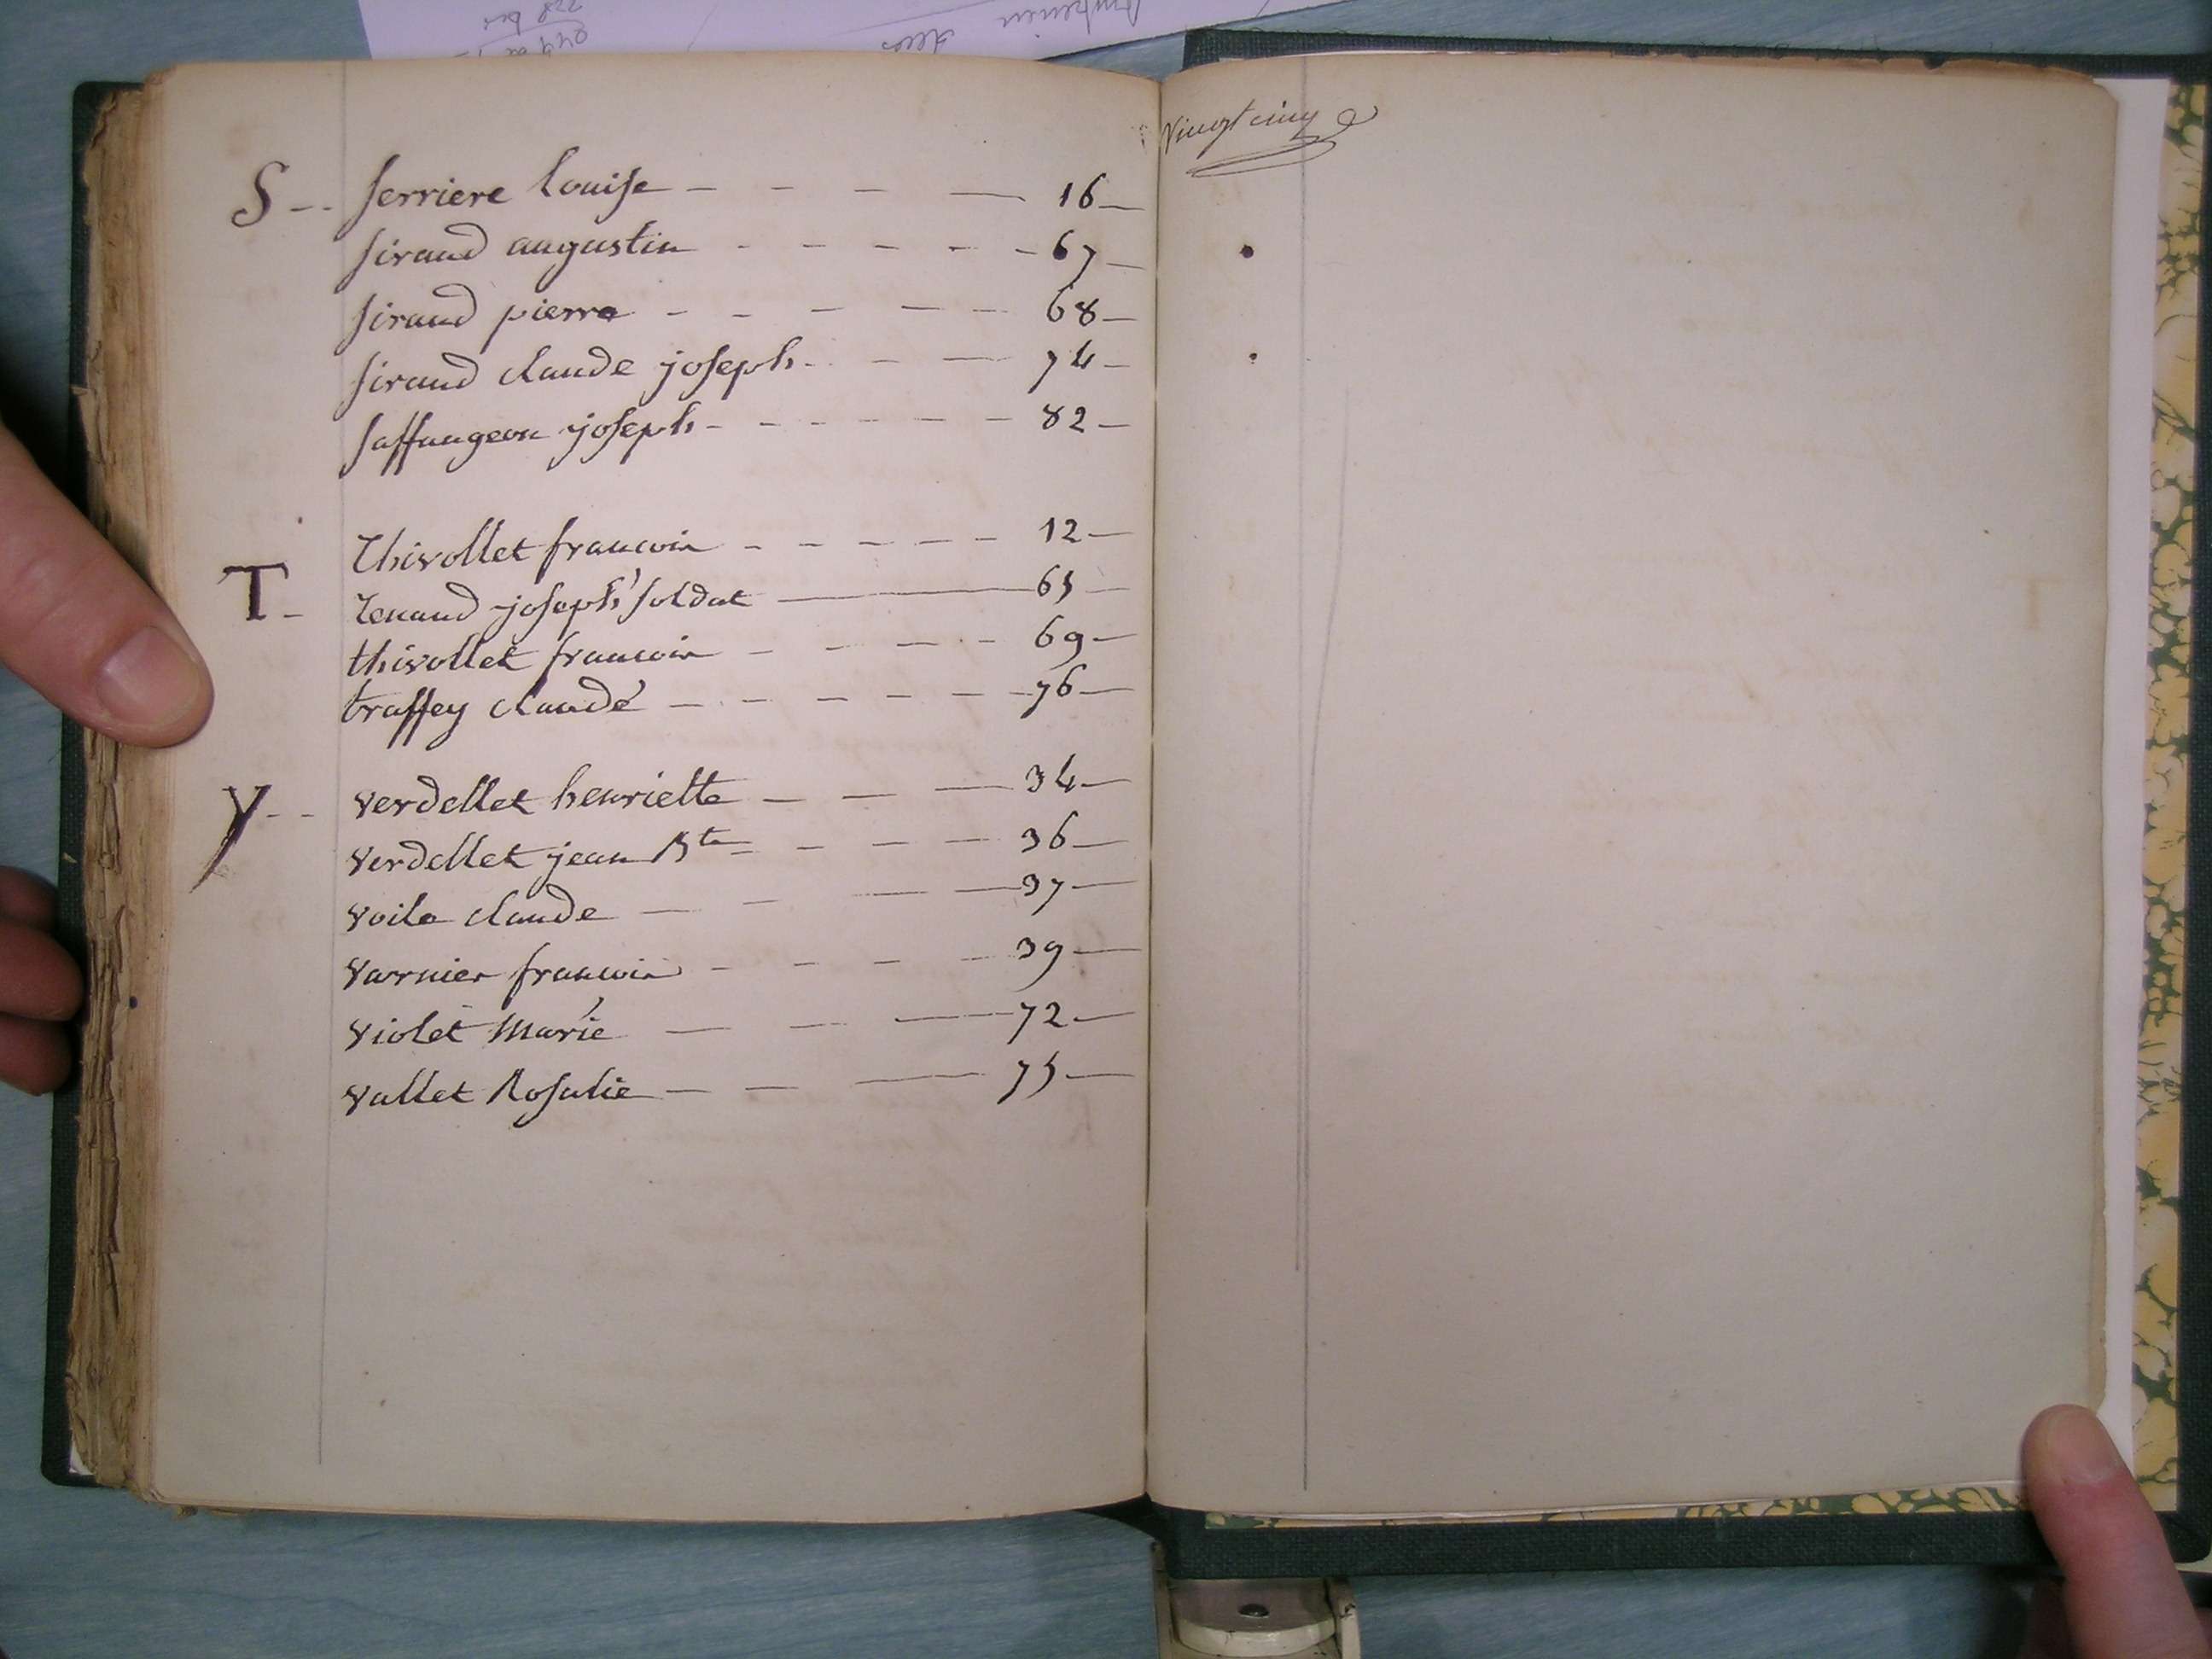 S -- Serriere Louise - - - - 16 -
Siraud augustin - - - - - 67 -
Siraud pierre - - - - - 68 -
Siraud claude joseph - - - 74 -
Saffangeon joseph - - - - - - 82 -
Thivollet francois - - - - - 12 -
T - Tenand joseph soldat - 65 -
thivollet francois - - - - - 69 -
traffey claude - - - - - - 76 -
V -- verdellet henriette - - - 34 -
verdellet jean Bte - - - - 36 -
voile claude - - - - 37 -
varnier francois - - - - - 39 -
violet Marie - - - 72 -
vallet Rosalie - - - 75 -
Vingt cinq